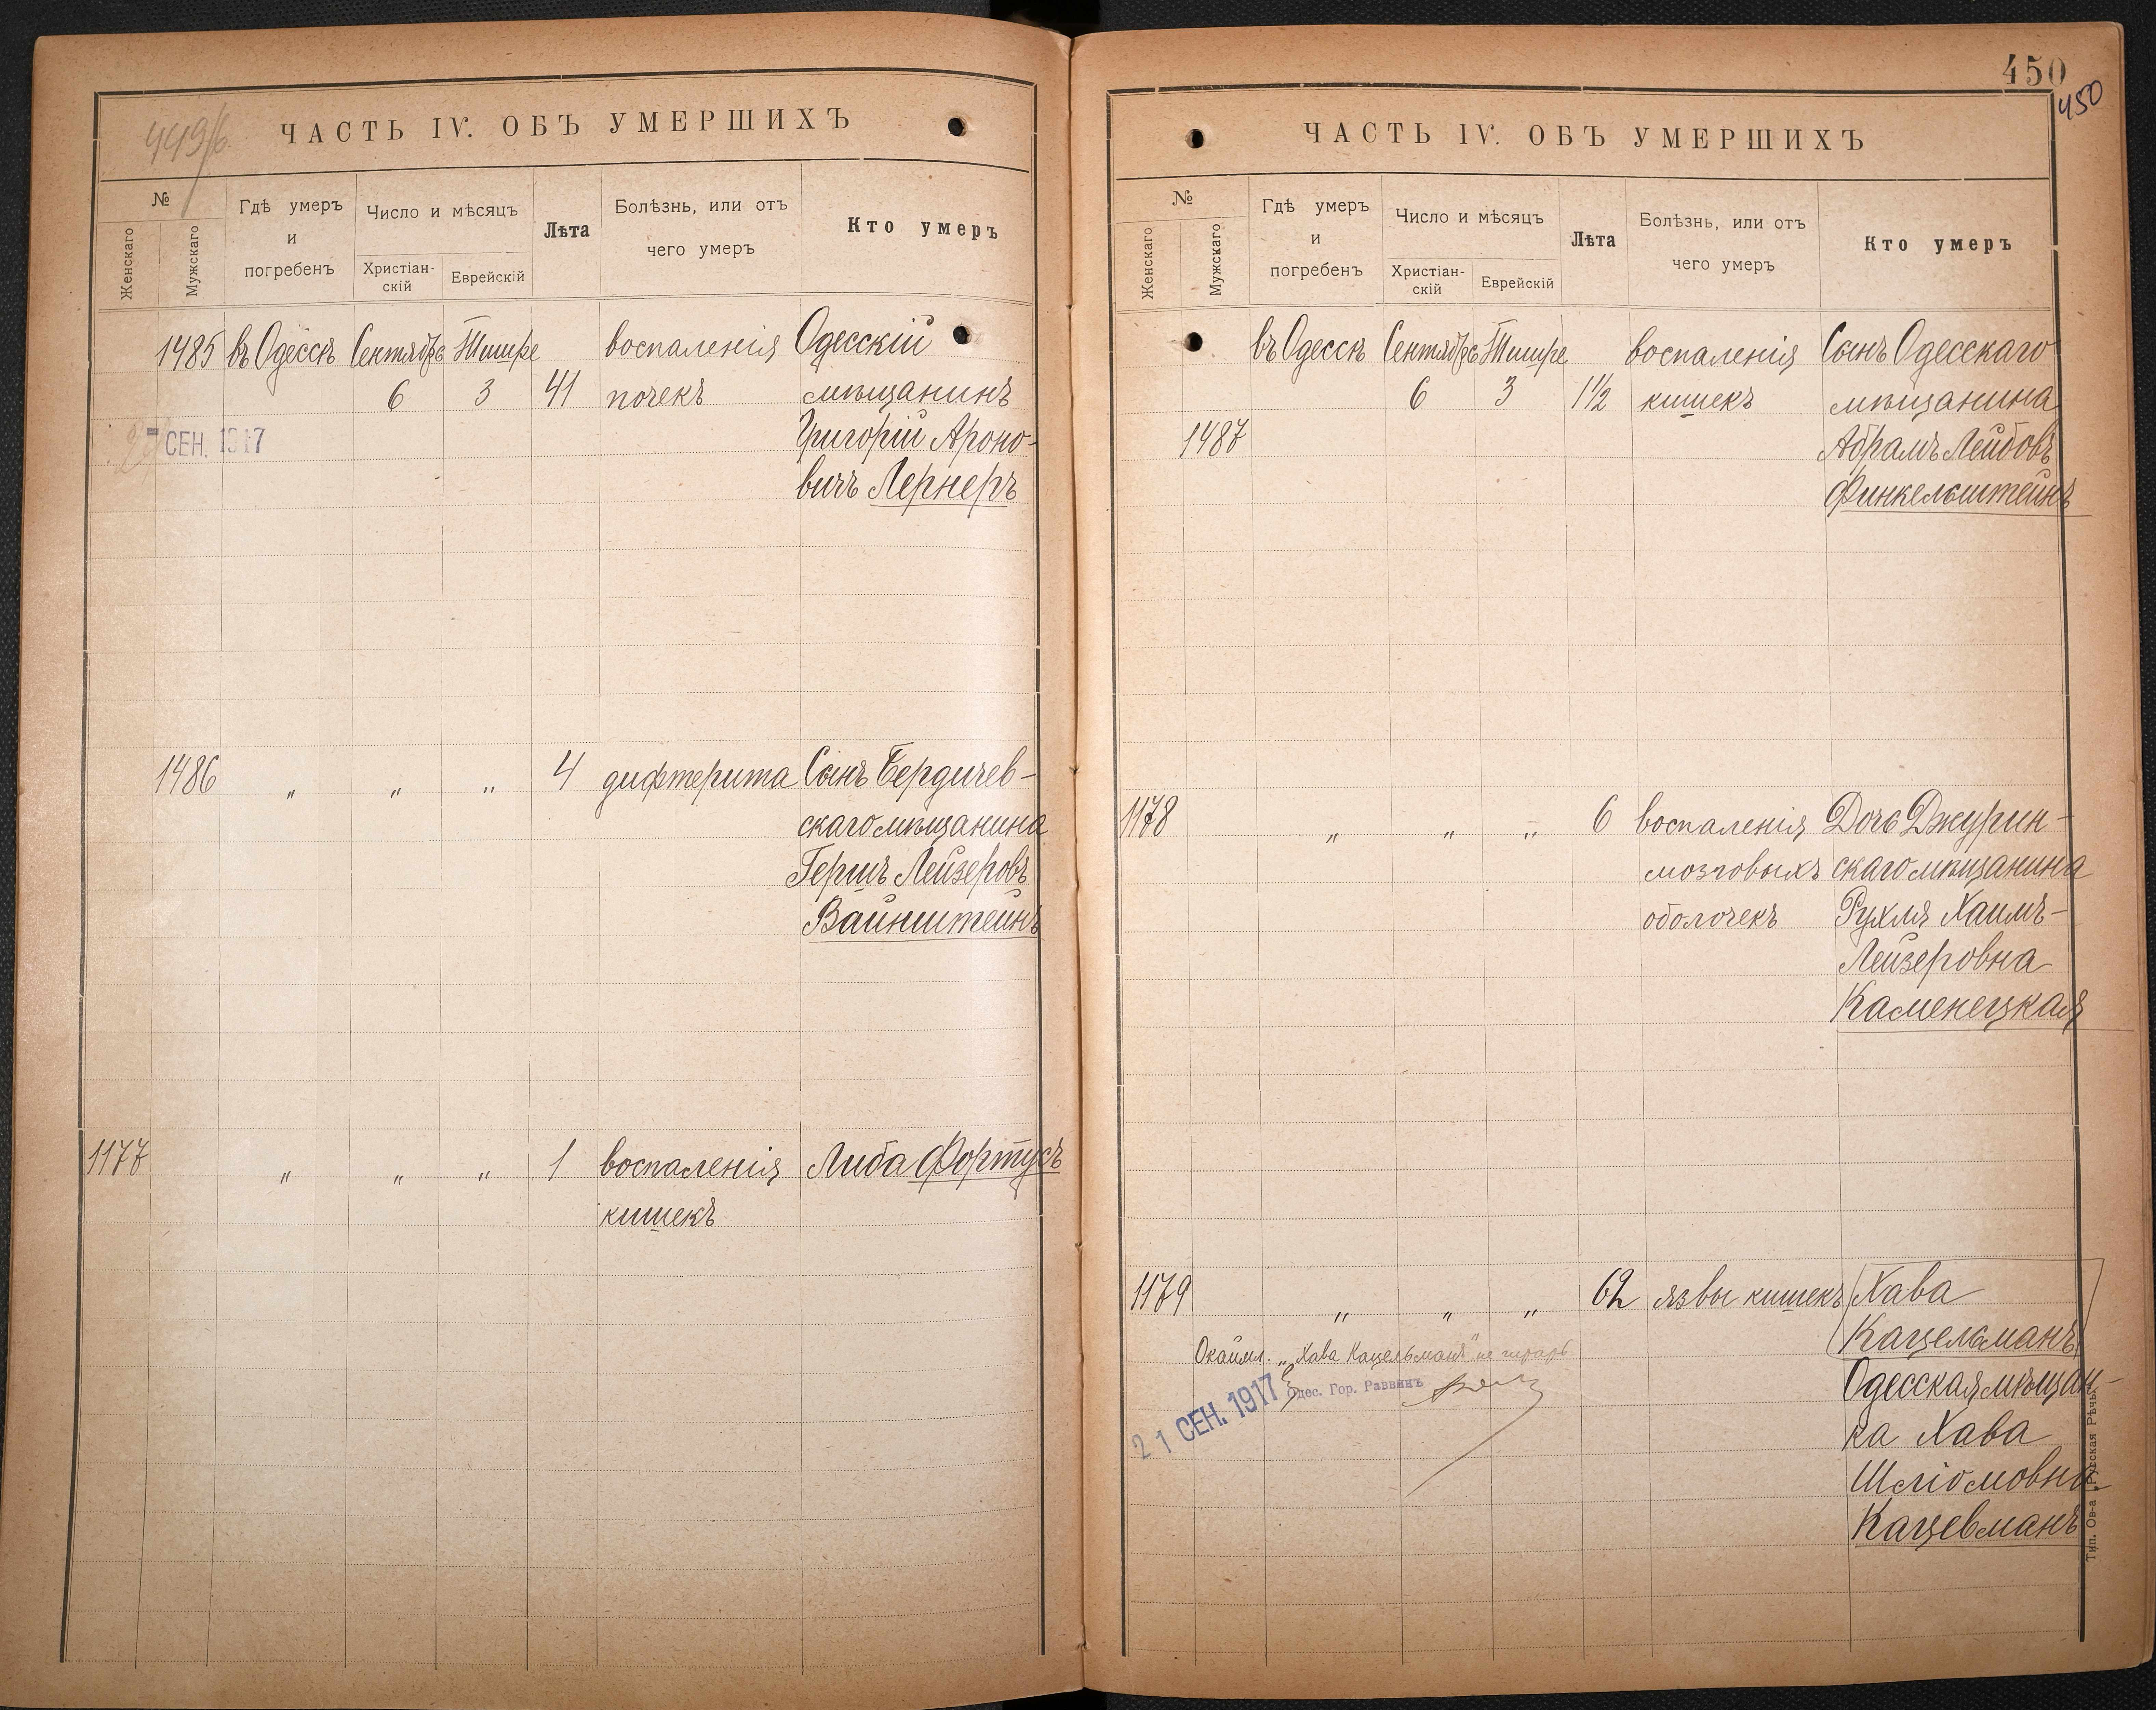 449/б.
ЧАСТЬ IV. ОБЪ УМЕРШИХЪ
№
Женскаго
Мужскаго
Гдѣ умеръ
и
погребенъ
Число и мѣсяцъ
Христіан-
скій
Еврейскій
Лѣта
Болѣзнь, или отъ
чего умеръ
Кто умеръ
1485 въ Одессѣ Сентябрь Тишре воспаленія Одесскій
6 3 41 почекъ мѣщанинъ
СЕН. 1917 Григорій Ароно-
вичъ Лернеръ
1486 „ „ „ 4 дифтерита Сынъ Бердичев-
скаго мѣщанина
Гершъ Лейзеровъ
Вайнштейнъ
1177 „ „ „ 1 воспаленія Либа Фортусъ
кишекъ
450
450
ЧАСТЬ IV. ОБЪ УМЕРШИХЪ
№
Женскаго
Мужскаго
Гдѣ умеръ
и
погребенъ
Число и мѣсяцъ
Христіан-
скій
Еврейскій
Лѣта
Болѣзнь, или отъ
чего умеръ
Кто умеръ
въ Одессѣ Сентябрь Тишре воспаленія Сынъ Одесскаго
6 3 1½ кишекъ мѣщанина
1487 Абрамъ Лейбовъ
Финкельштейнъ
1178 „ „ „ 6 воспаленія Дочь Джурин-
мозговыхъ скаго мѣщанина
оболочекъ Рухля Хаимъ-
Лейзеровна
Каменецкая
1179 „ „ „ 62 язвы кишекъ Хава
Кацельманъ
Окаймл. „Хава Кацельманъ" не
Одесская мѣщан-
21 СЕН. 1917 Одес. Гор. Раввинъ
ка Хава
Шліомовна
Кацевманъ
Тип. Ов-а „Русская Рѣчь"